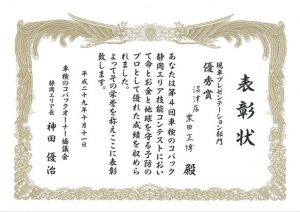 表彰状
現車プレゼンテーション部門
優秀賞
沼津店
栗田正博 殿
あなたは第4回車検のコバック
静岡エリア技能コンテストにおい
て命とお金と地球を守る予防の
プロとして優れた成績を収めら
れました。
よってその栄誉を称えここに表彰
致します。
平成二十九年十月十一日
車検のコバックオーナー協議会
静岡エリア長 神田優治